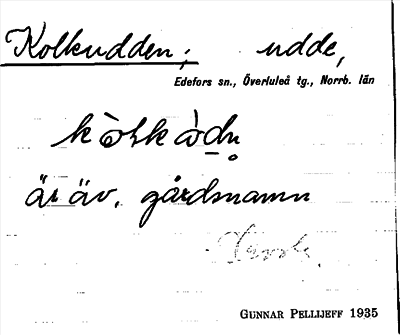 Kolkudden, udde,
Edefors sn., Överluleå tg., Norrb. län
är äv. gårdsnamn
GUNNAR PELLIJEFF 1935